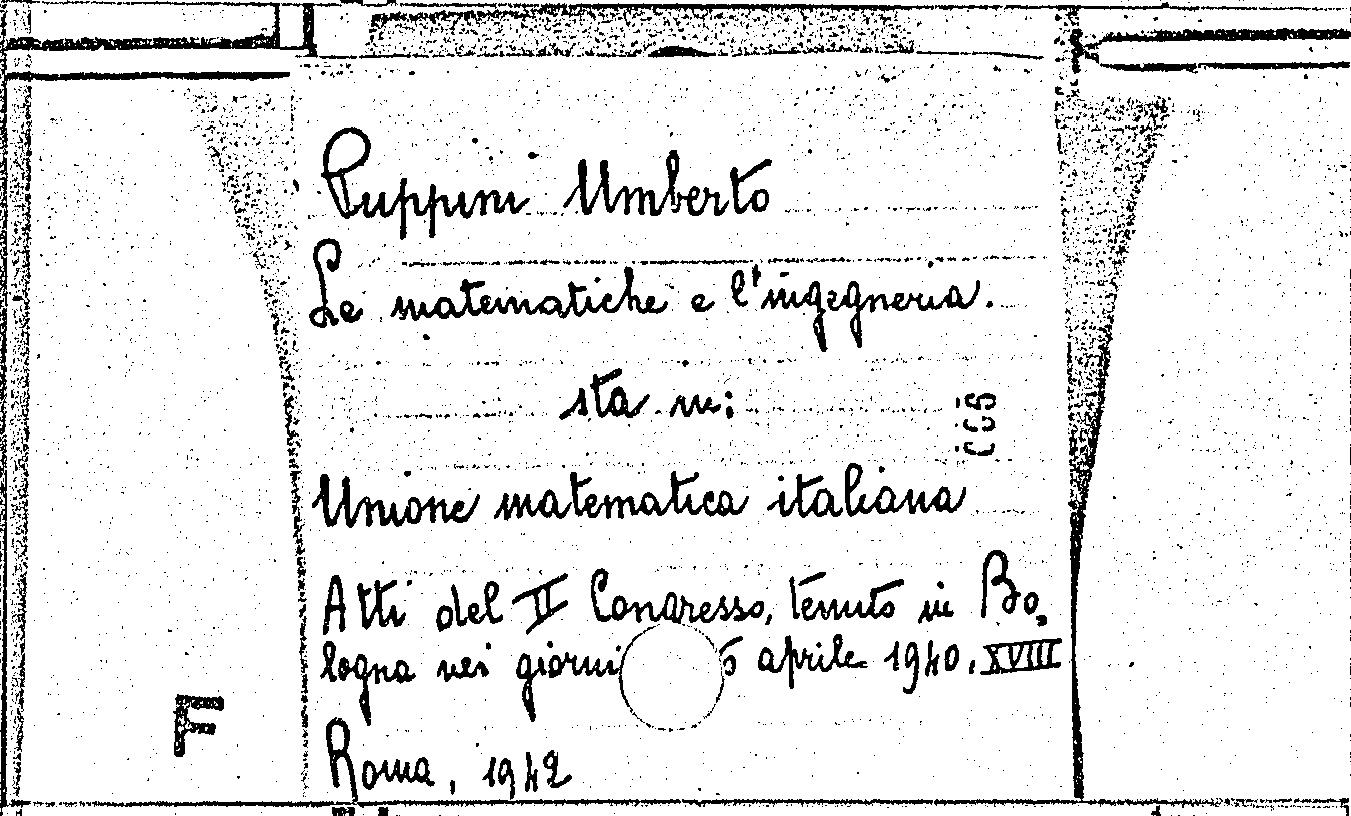 Puppini Umberto
Le matematiche e l'ingegneria.
sta in:
Unione matematica italiana
Atti del II Congresso, tenuto in Bo.
logna nei giorni 6 aprile 1940. XVIII
F
Roma, 1942